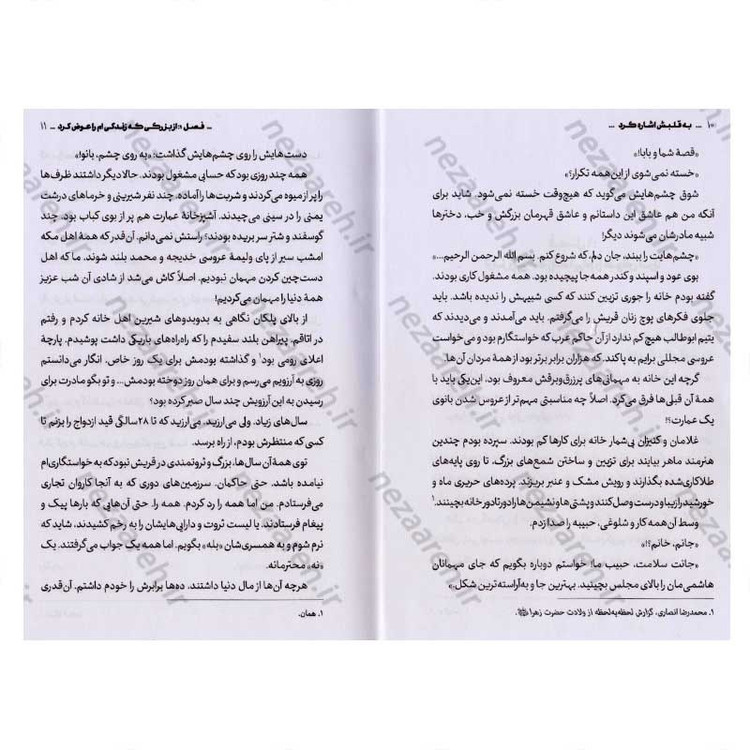 ۱۰ ... به قلبش اشاره کرد ...
«قصهٔ شما و بابا!»
«خسته نمی‌شوی از این همه تکرار؟»
شوق چشم‌هایش می‌گوید که هیچ‌وقت خسته نمی‌شود. شاید برای
آنکه من هم عاشق این داستانم و عاشق قهرمان بزرگش و خب، دخترها
شبیه مادرشان می‌شوند دیگر!
«چشم‌هایت را ببند، جان دلم، که شروع کنم. بسم الله الرحمن الرحیم...»
بوی عود و اسپند و کندر همه‌جا پیچیده بود. همه مشغول کاری بودند.
گفته بودم خانه را جوری تزیین کنند که کسی شبیهش را ندیده باشد. باید
جلوی فکرهای پوچ زنان قریش را می‌گرفتم. باید می‌آمدند و می‌دیدند که
یتیم ابوطالب هیچ کم ندارد از آن حاکم عرب که خواستگارم بود و می‌خواست
عروسی مجللی برایم به پا کند، که هزاران برابر برتر بود از همهٔ مردان آن‌ها.
گرچه این خانه به مهمانی‌های پرزرق‌وبرقش معروف بود، این‌یکی باید با
همهٔ آن قبلی‌ها فرق می‌کرد. اصلاً چه مناسبتی مهم‌تر از عروس شدن بانوی
یک عمارت؟!
غلامان و کنیزان بی‌شمار خانه برای کارها کم بودند. سپرده بودم چندین
هنرمند ماهر بیایند برای تزیین و ساختن شمع‌های بزرگ، تا روی پایه‌های
طلاکاری‌شده بگذارند و رویش مشک و عنبر بریزند. پرده‌های حریری ماه و
خورشید را زیبا و درست وصل کنند و پشتی‌ها و نشیمن‌ها را دورتادور خانه بچینند.۱
وسط آن همه کار و شلوغی، حبیبه را صدا زدم.
«جانم، خانم؟!»
«جانت سلامت، حبیب ما! خواستم دوباره بگویم که جای مهمانان
هاشمی‌مان را بالای مجلس بچینید. بهترین جا و به آراسته‌ترین شکل.»
۱. محمدرضا انصاری، گزارش لحظه‌به‌لحظه از ولادت حضرت زهرا
... فصل ۱: از بزرگی که زندگی‌ام را عوض کرد ... ۱۱
دست‌هایش را روی چشم‌هایش گذاشت: «به روی چشم، بانو!»
همه چند روزی بود که حسابی مشغول بودند. حالا دیگر داشتند ظرف‌ها
را پر از میوه می‌کردند و شربت‌ها را آماده. چند نفر شیرینی و خرماهای درشت
یمنی را در سینی می‌چیدند. آشپزخانهٔ عمارت هم پر از بوی کباب بود. چند
گوسفند و شتر سر بریده بودند؟ راستش نمی‌دانم. آن‌قدر که همهٔ اهل مکه
امشب سیر از پای ولیمهٔ عروسی خدیجه و محمد بلند شوند. ما که اهل
دست‌چین کردن مهمان نبودیم. اصلاً کاش می‌شد از شادی آن شب عزیز
همهٔ دنیا را مهمان می‌کردیم!
از بالای پلکان نگاهی به بدوبدوهای شیرین اهل خانه کردم و رفتم
در اتاقم. پیراهن بلند سفیدم را که راه‌راه‌های باریکی داشت پوشیدم. پارچهٔ
اعلای رومی بود۱ و گذاشته بودمش برای یک روز خاص. انگار می‌دانستم
روزی به آرزویم می‌رسم و برای همان روز دوخته بودمش... و تو بگو مادرت برای
رسیدن به این آرزویش چند سال صبر کرده بود؟
سال‌های زیاد. ولی می‌ارزید، می‌ارزید که تا ۲۸سالگی قید ازدواج را بزنم تا
کسی که منتظرش بودم، از راه برسد.
توی همهٔ آن سال‌ها، بزرگ و ثروتمندی در قریش نبود که به خواستگاری‌ام
نیامده باشد. حتی حاکمان. سرزمین‌های دوری که به آنجا کاروان تجاری
می‌فرستادم. من اما همه را رد کردم. همه را. حتی آن‌هایی که بارها پیک و
پیغام فرستادند. یا لیست ثروت و دارایی‌هایشان را به رخم کشیدند. شاید که
نرم شوم و به همسری‌شان «بله» بگویم. اما همه یک جواب می‌گرفتند. یک
«نه» محترمانه.
هرچه آن‌ها از مال دنیا داشتند، ده‌ها برابرش را خودم داشتم. آن‌قدری
۱. همان.
nezaareh.ir